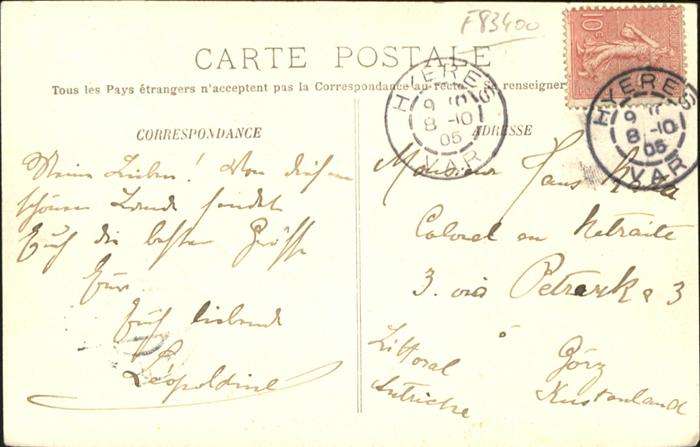 F83400
CARTE POSTALE
Tous les Pays étrangers n'acceptent pas la Correspondance au recto. renseigner
HYERES
9
8 -10
05
VAR
HYERES
9
8 -10
05
VAR
10
CORRESPONDANCE
ADRESSE
Meine Lieben! Von diesem
schönen Lande sendet
Euch die besten Grüsse
Eure
Euch liebende
Léopoldine
Monsieur Hans
Colonel en Retraite
3. via Petrarka 3
à
Görz
Littoral
Autriche
Küstenland